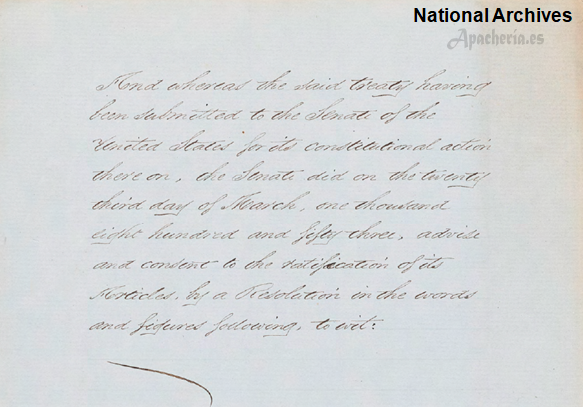 National Archives
Apacheria.es
And whereas the said treaty having
been submitted to the Senate of the
United States for its constitutional action
there on, the Senate did on the twenty
third day of March, one thousand
eight hundred and fifty three, advise
and consent to the ratification of its
Articles, by a Resolution in the words
and figures following, to wit: